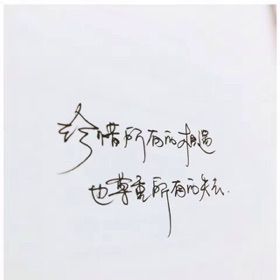 珍惜所有的相遇
也尊重所有的失去.